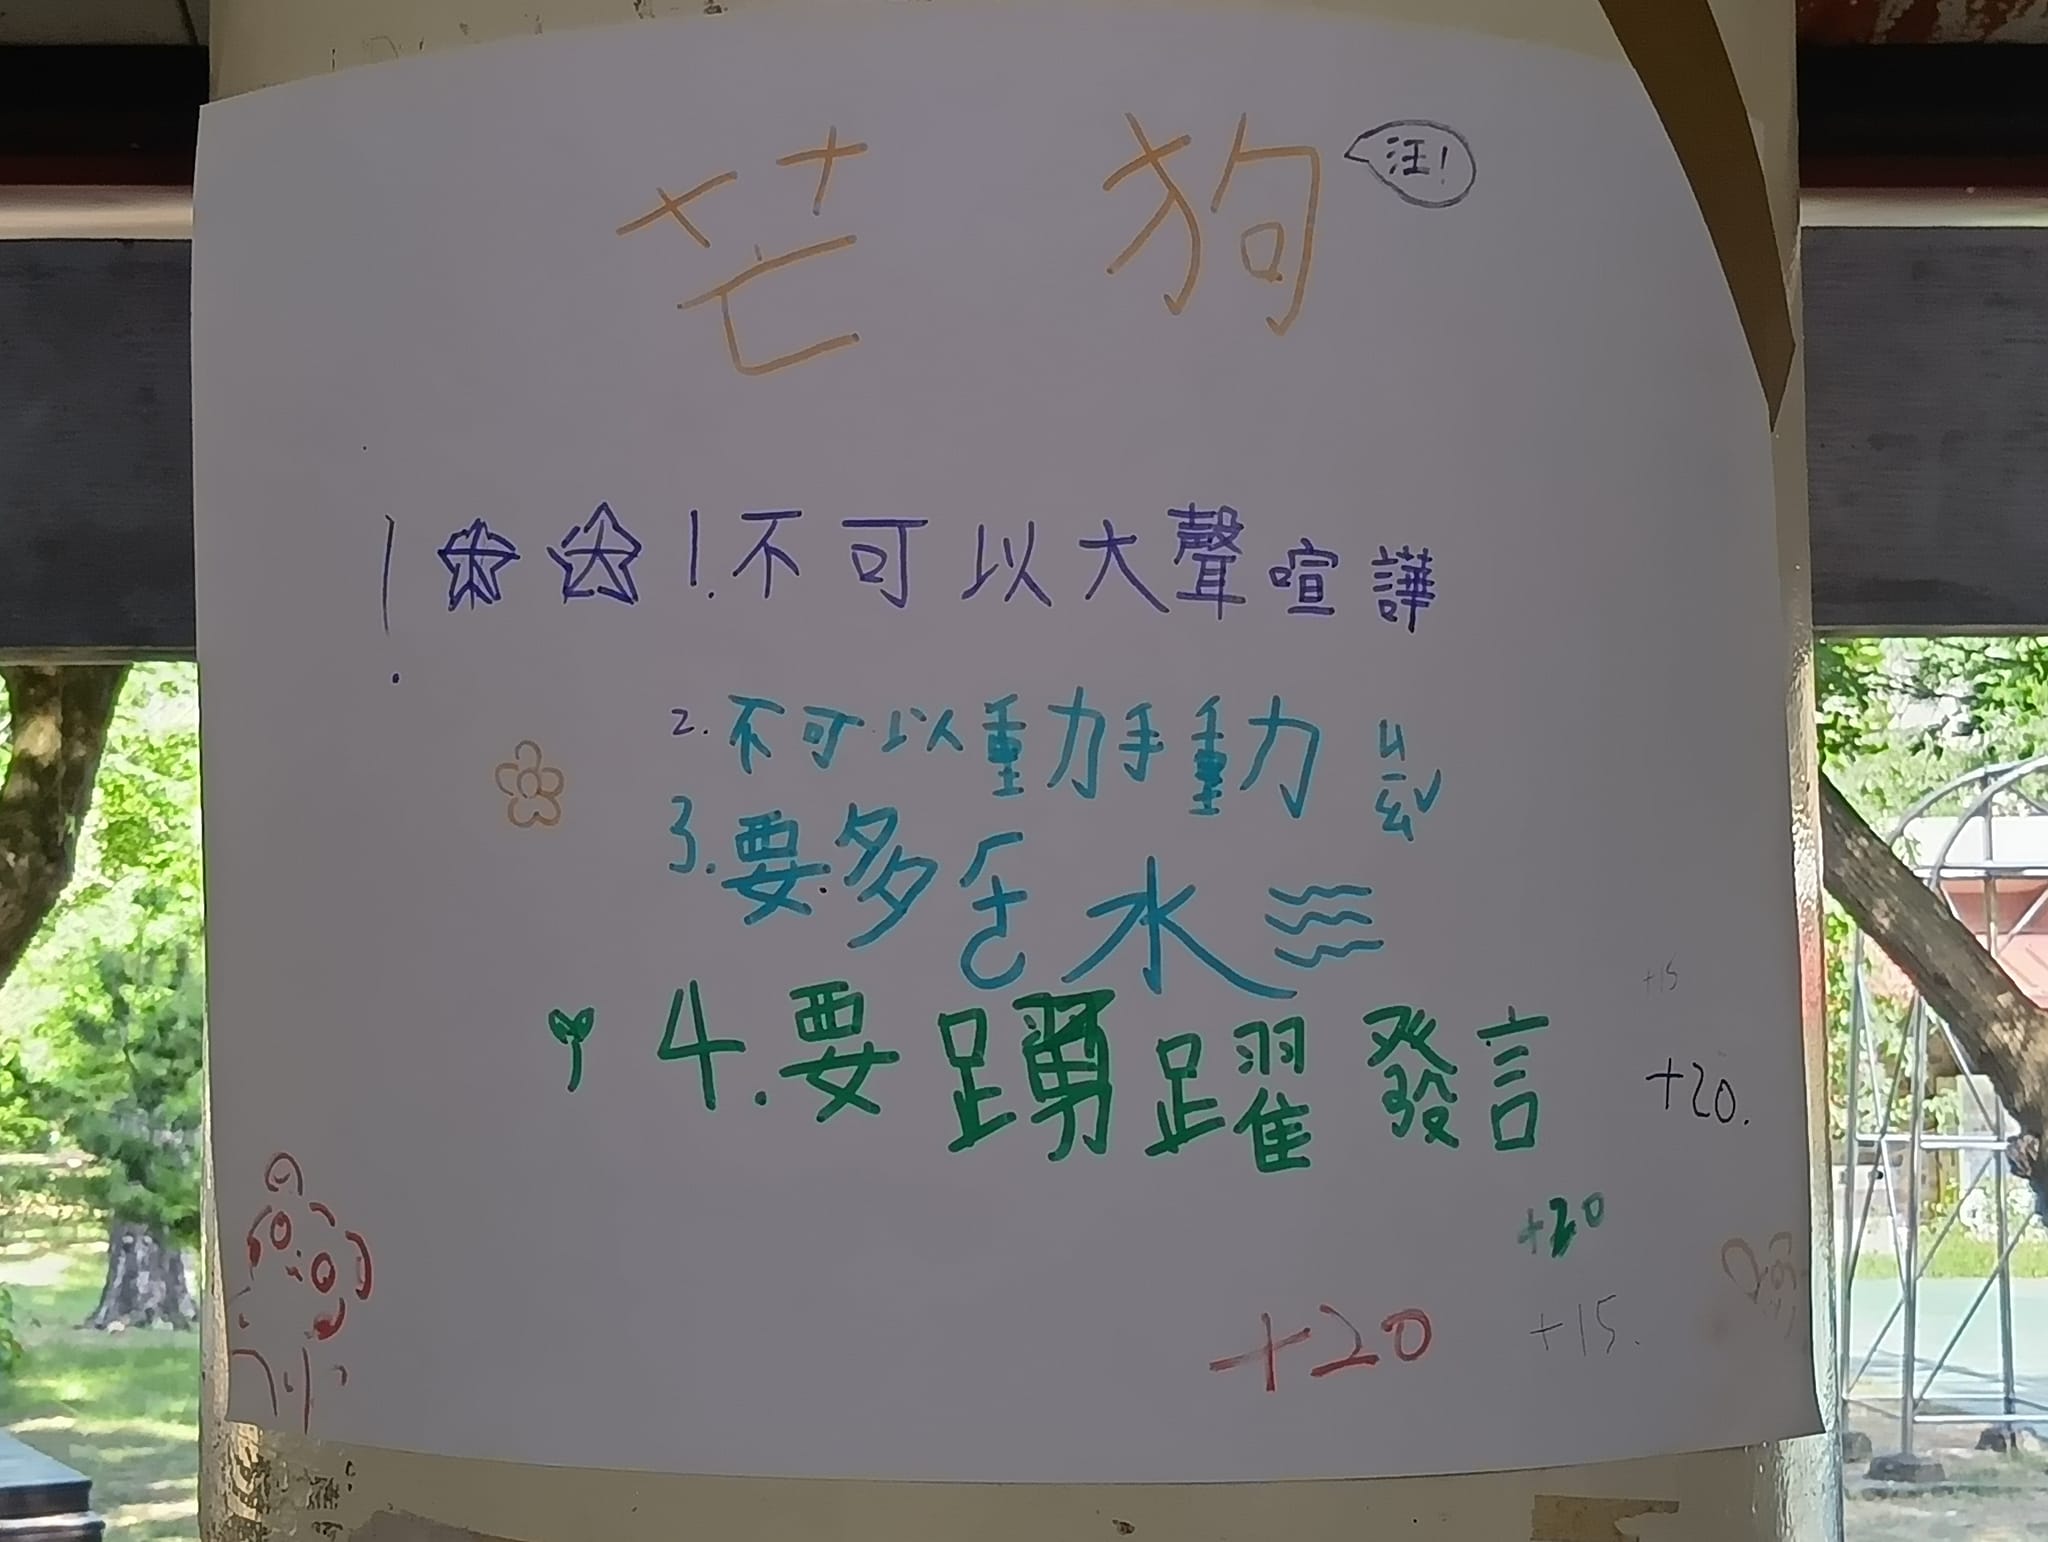 芒狗
汪!
1.不可以大聲喧譁
2.不可以動手動ㄐㄧㄠˇ
3.要多ㄏㄜ水
4.要踴躍發言
+15
+20.
+20
+20
+15.